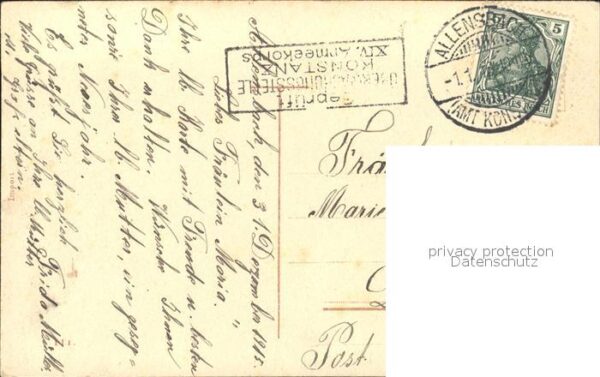 Allensbach, den 31. Dezember 1915.
Liebes Fräulein Maria!
Ihre lb. Karte mit Freude u. besten
Dank erhalten. Wünsche Ihnen
sowie Ihrer lb. Mutter, ein geseg-
netes Neujahr.
Es grüßt Sie herzlich
Frida Müller
Viele Grüße an Ihre lb. Mutter
Geprüft
ÜBERWACHUNGSSTELLE
KONSTANZ
XIV. Armeekorps
ALLENSBACH
-1.1.
(AMT KONS
5
Frä
Marie
Post
privacy protection
Datenschutz